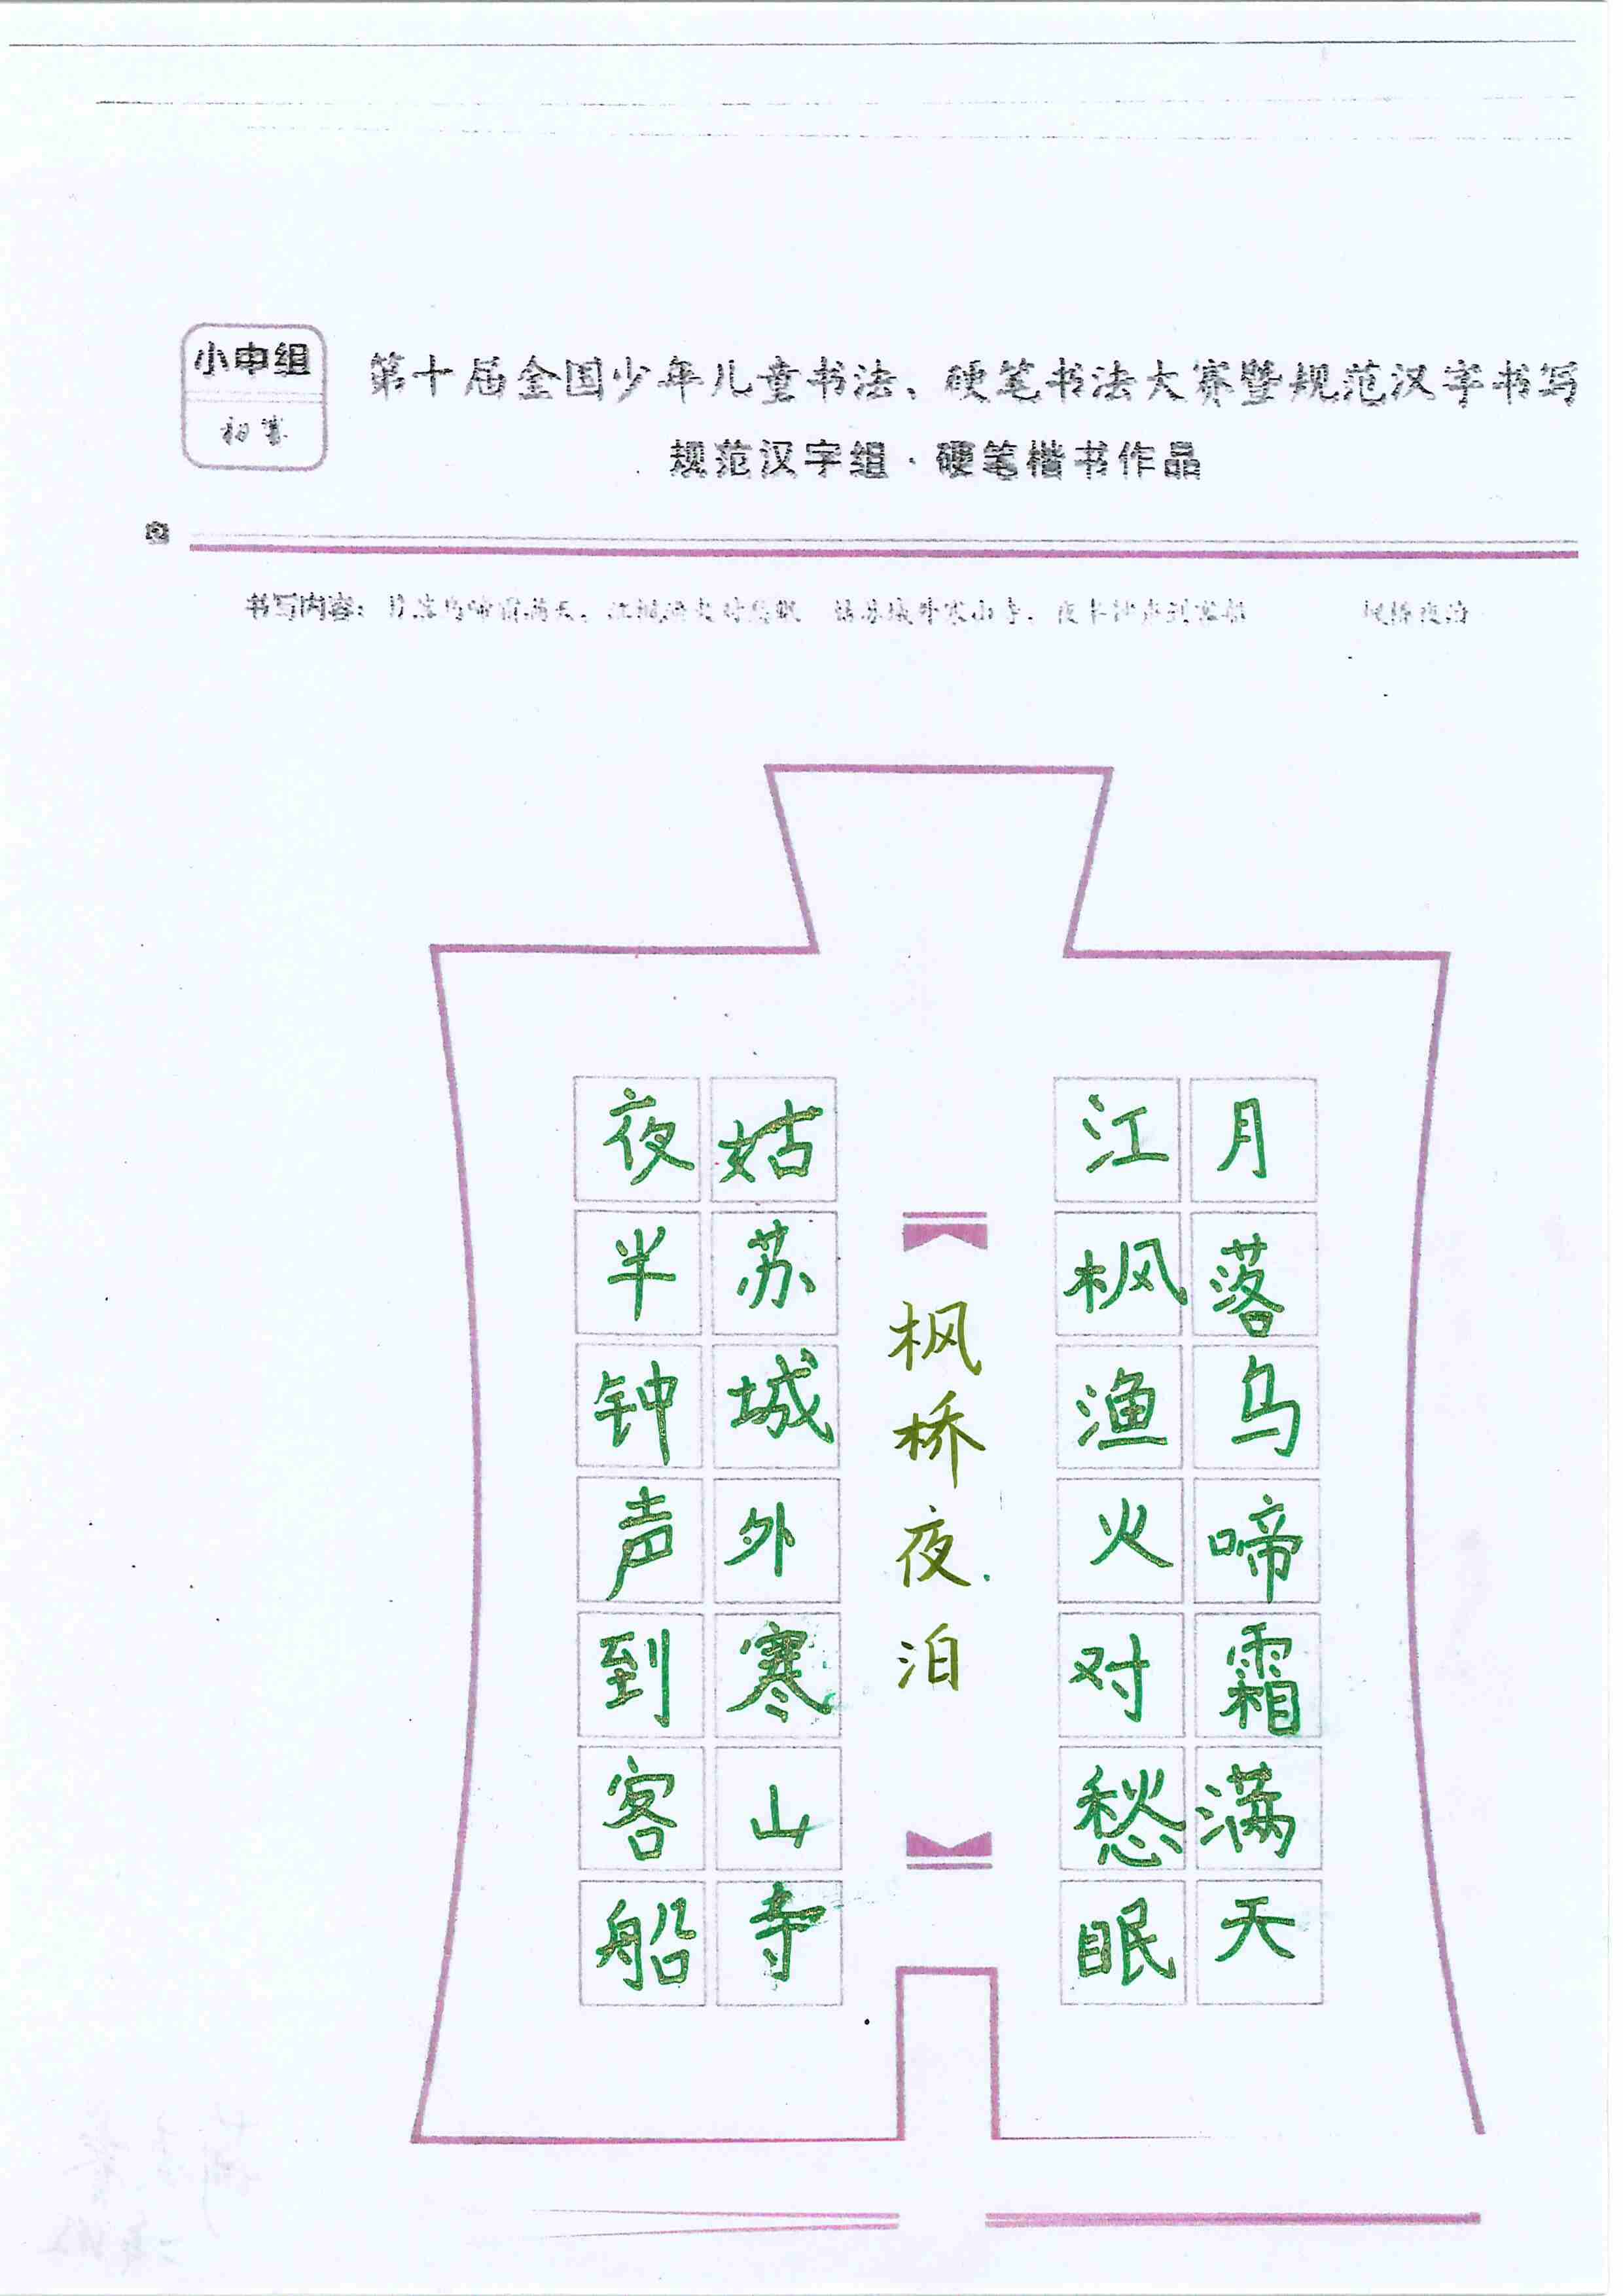 小中组
初赛
第十届全国少年儿童书法、硬笔书法大赛暨规范汉字书写
规范汉字组·硬笔楷书作品
书写内容：月落乌啼霜满天，江枫渔火对愁眠 姑苏城外寒山寺，夜半钟声到客船 枫桥夜泊
月落乌啼霜满天
江枫渔火对愁眠
枫桥夜泊
姑苏城外寒山寺
夜半钟声到客船